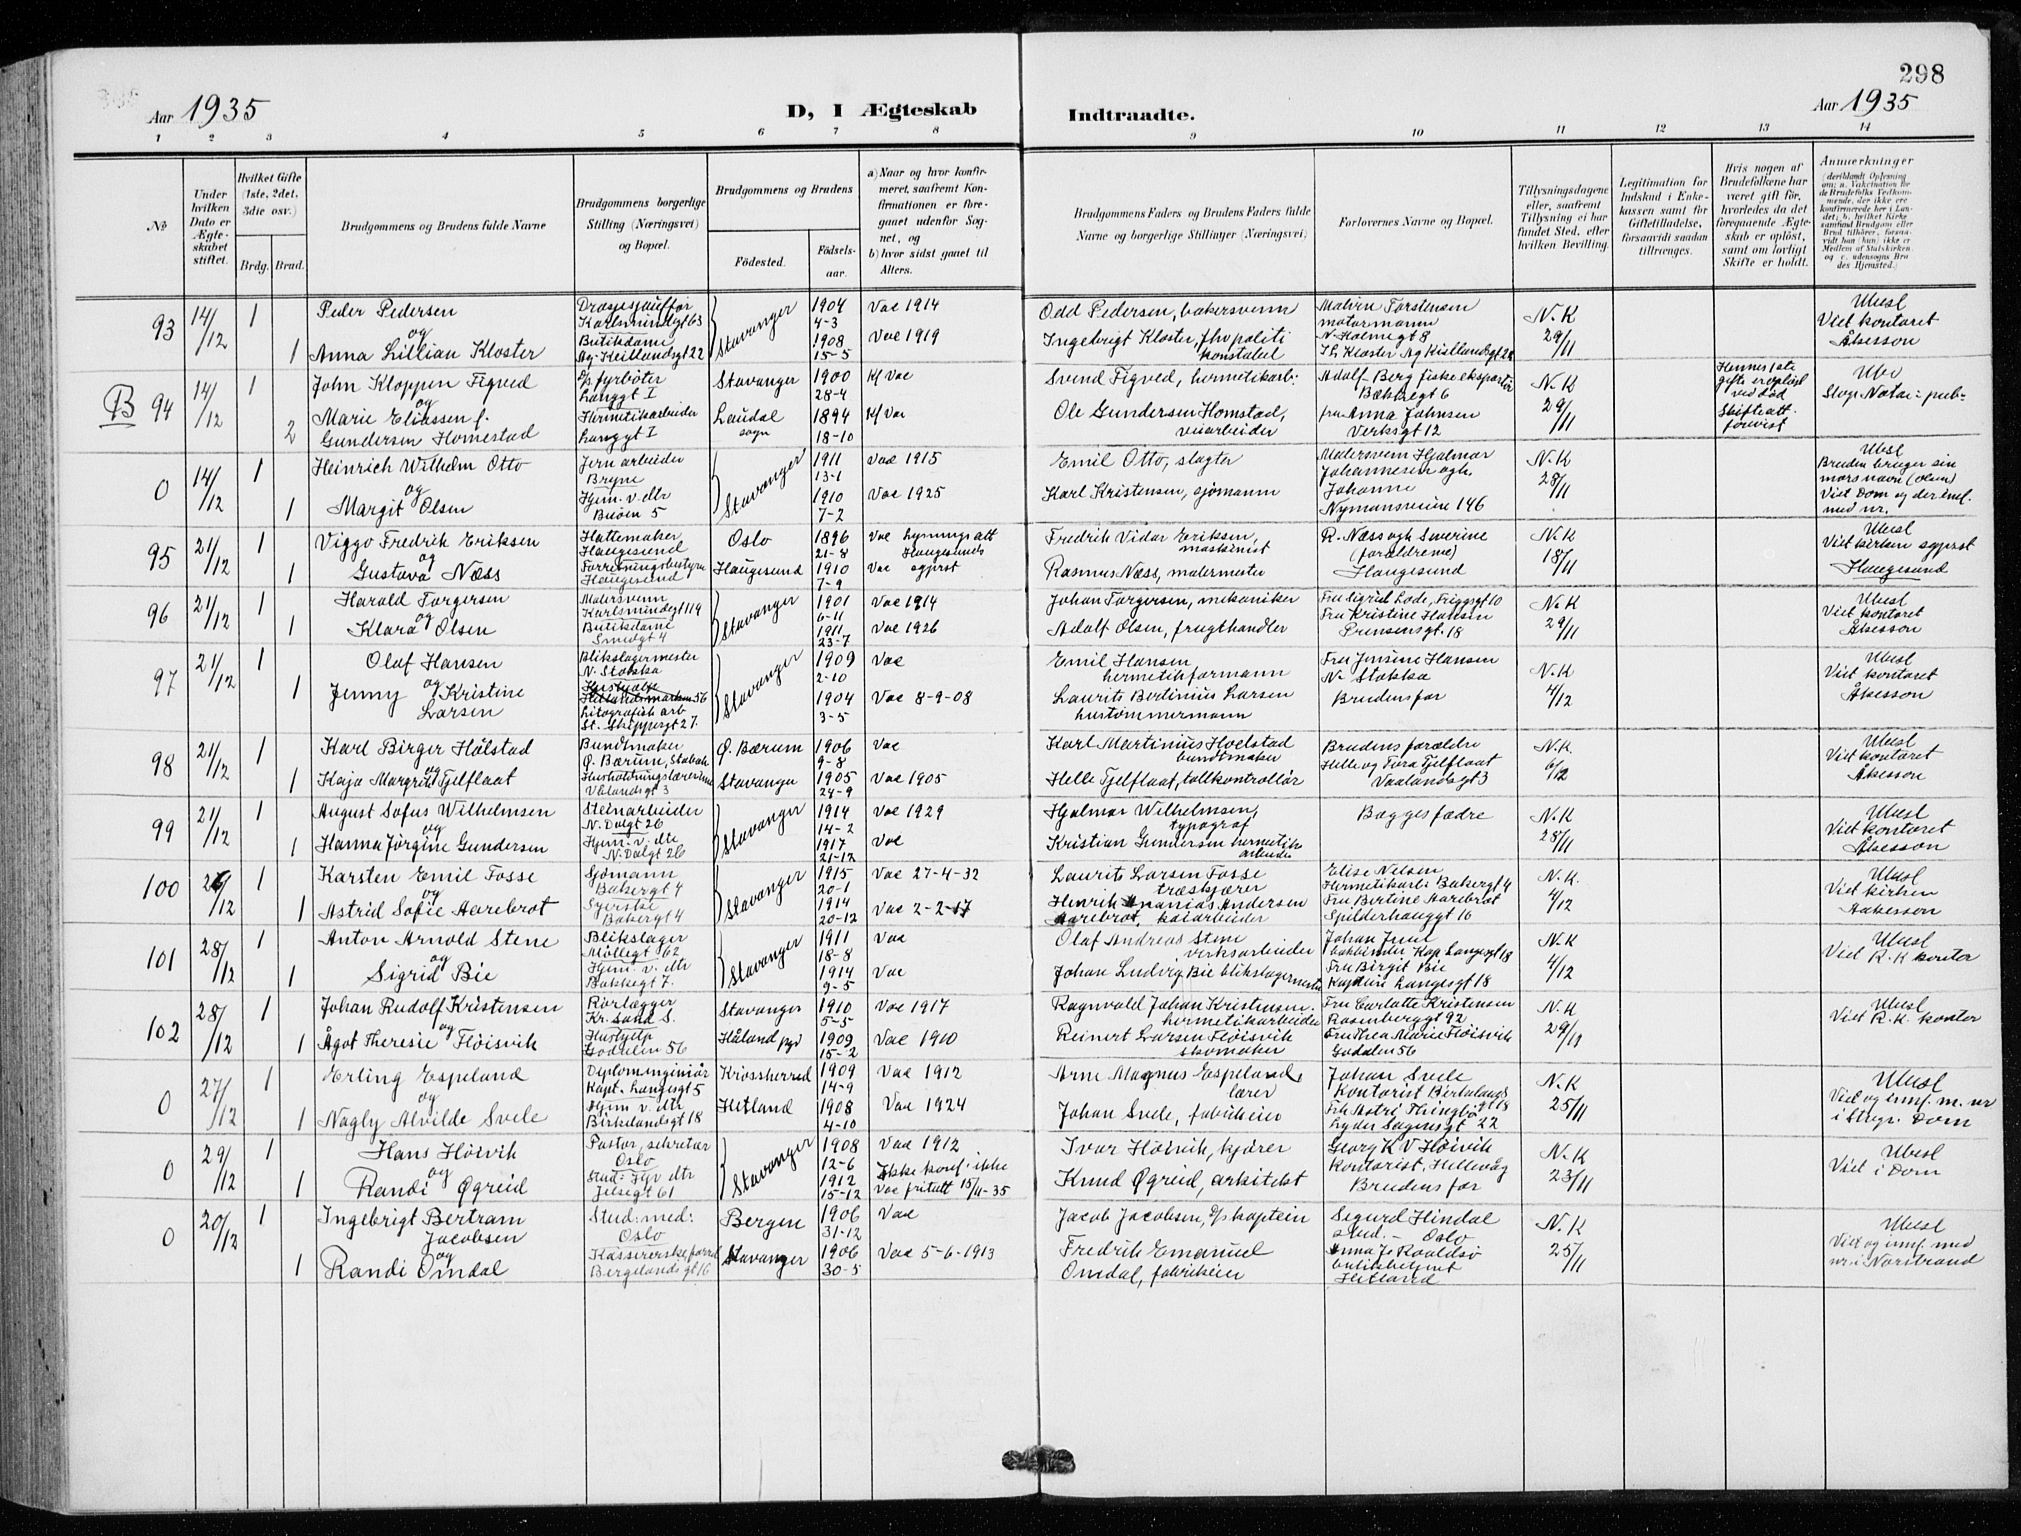 298
Aar 1935
D, I Ægteskab
Indtraadte.
Aar 1935
1 2 3 4 5 6 7 8 9 10 11 12 13 14
№
Under hvilken Dato er Ægteskabet stiftet.
Hvilket Gifte (1ste, 2det, 3die osv.)
Brdg. Brud.
Brudgommens og Brudens fulde Navne
Brudgommens borgerlige Stilling (Næringsvei) og Bopæl.
Brudgommens og Brudens
Fødested. Fødselsaar.
a) Naar og hvor konfirmeret, saafremt Konfirmationen er foregaaet udenfor Sognet, og
b) hvor sidst gaaet til Alters.
Brudgommens Faders og Brudens Faders fulde Navne og borgerlige Stillinger (Næringsvei)
Forlovernes Navne og Bopæl.
Tillysningsdagene eller, saafremt Tillysning ei har fundet Sted, efter hvilken Bevilling.
Legitimation for Indskud i Enkekassen samt for Giftetilladelse, forsaavidt saadan tiltrænges.
Hvis nogen af Brudefolkene har været gift før, hvorledes da det foregaaende Ægteskab er opløst, samt om lovligt Skifte er holdt.
Anmerkninger
93 14/12 1 Peder Pedersen Karlsmindegt 63 Stavanger 1904 4-3 Vac 1914 Odd Pedersen, bakersvenn Malvin Torstensen motormann N. Holmegt 8 N.K 29/11 Ubesl Viet kontoret Åkesson
og
1 Anna Lillian Kloster Butikdame 1908 15-5 Vac 1919 Ingebrigt Kloster, politikonstabel
B 94 14/12 1 John Kloppen Figved fyrbøter Langgt I Stavanger 1900 28-4 K/ Vac Svend Figved, hermetikarb: Adolf Berg fiskeeksportør Bakkegt 6 N.K 29/11 Hennes 1ste gifte er opløst ved død
og
2 Marie Eliassen f. Gundersen Homestad Hermetikarbeider Langgt I Laudal sogn 1894 18-10 K/ Vac Ole Gundersen Homstad, veiarbeider fru Anna Johnsen Verksgt 12 Skifteatt. forevist
0 14/12 1 Heinrich Wilhelm Otto Jernarbeider Bryne Stavanger 1911 13-1 Vac 1915 Emil Otto, slagter Malersvenn Hjalmar Johannesen ogh. Johanne Nymansveien 146 N.K 28/11 Ubesl Bruden bruger sin mors navn (Olsen) Viet Dom og der innf. med nr.
og
1 Margit Olsen Hjem. v. dtr Buøen 5 1910 7-2 Vac 1925 Karl Kristensen, sjømann
95 21/12 1 Viggo Fredrik Eriksen Hattemaker Haugesund Oslo 1896 21-8 Vac Lysningsatt Haugesunds Fredrik Vidar Eriksen, maskinist R. Næss ogh Severine (foreldrene) Haugesund N.K 18/11 Ubesl Viet kirken Haugesund
og
1 Gustava Næss Forretningsbestyr Haugesund Haugesund 1910 7-9 Vac Rasmus Næss, malermester
96 21/12 1 Harald Torgersen Malersvenn Karlsmindegt 119 Stavanger 1901 6-11 Vac 1914 Johan Torgersen, mekaniker Fru Sigrid Lode, Friggsgt 10 N.K 29/11 Ubesl Viet kontoret Åkesson
og
1 Klara Olsen Butikdame Smedgt 4 1911 23-7 Vac 1926 Adolf Olsen, frugthandler Fru Kristine Hansen Prinsensgt. 18
97 21/12 1 Olaf Hansen Blikslagermester N. Stokka Stavanger 1909 2-10 Vac Emil Hansen, hermetikformann Fru Jensine Hansen N. Stokka N.K 4/12 Ubesl Viet kontoret Åkesson
og
1 Jenny Kristine Larsen Litografisk arb St. Skippergt 27. 1904 3-5 Vac 8-9-08 Laurits Bertinius Larsen hustømmermann Brudens far
98 21/12 1 Karl Birger Hölstad Bundtmaker Ø. Bærum, Stabæk Ø. Bærum 1906 9-8 Vac Karl Martinius Hoelstad bundtmaker Brudens forældre N.K. 6/12 Ubesl Viet kontoret Åkesson
og
1 Kaja Margrete Tjelflaat Husholdningslærerinne Vålandsgt 3 Stavanger 1905 24-9 Vac 1905 Helle Tjelflaat, tollkontrollør Helle og Tora Tjelflaat Vaalandsgt 3
99 21/12 1 August Sofus Wilhelmsen Steinarbeider N. Dalgt 26 Stavanger 1914 14-2 Vac 1929 Hjalmar Wilhelmsen, typograf Begges fædre N.K 28/11 Ubesl Viet kontoret Åkesson
og
1 Hanna Jørgine Gundersen Hjem. v. dtr N. Dalgt 26 1917 21-12 Vac Kristian Gundersen hermetikarbeider
100 /12 1 Karsten Emil Fosse Sjømann Bakergt 4 Stavanger 1915 20-1 Vac 27-4-32 Laurits Larsen Fosse træskjærer Elise Nelsen Hermetikarb: Bakergt 4 N.K. 4/12 Ubesl Viet kirken Aakesson
og
1 Astrid Sofie Aarebrot Syerske Bakergt 4 1914 20-12 Vac 2-2-17 Henrik Ananias Andersen Aarebrot, kaiarbeider Fru Bertine Aarebrot Spilderhauggt 16
101 28/12 1 Anton Arnold Stene Blikslager Møllegt 62 Stavanger 1911 18-8 Vac Olaf Andreas Stene verksarbeider Johan Juul bokbinder Kap Langesgt 18 N.K 4/12 Ubesl Viet R.K. kontor
og
1 Sigrid Bie Hjem. v. dtr Bakkegt 7. 1914 9-5 Vac Johan Ludvig Bie blikslagermester Fru Birgit Bie Kaptein Langesgt 18
102 28/12 1 Johan Rudolf Kristensen Rørlægger Kr. Sand S. Stavanger 1910 5-5 Vac 1917 Ragnvald Johan Kristensen. hermetikarbeider Fru Carlotte Kristensen Rosenberggt 92 N.K 29/11 Ubesl Viet R.K. kontor
og
1 Ågot Theresie Fløisvik Hushjelp Godalen 56 Håland 1909 15-2 Vac 1910 Reinert Larsen Fløisvik skomaker Fru Thea Marie Fløisvik Godalen 56
0 27/12 1 Erling Espeland Diplomingeniør Kapt. Langesgt 5 Krossherred 1909 14-9 Vac 1912 Arne Magnus Espeland, lærer Johan Svele Kontorist Birkelandsgt 18 N.K 25/11 Ubesl Viet og innf. m. nr i Stvgr. Dom
og
1 Nagly Alvilde Svele Hjem v. dtr Birkelandsgt 18 Hetland 1908 4-10 Vac 1924 Johan Svele, fabrikeier Lyder Sagensgt 22
0 29/12 1 Hans Høivik Pastor, sekretær Oslo Stavanger 1908 12-6 Vac 1912 Ivar Høivik, kjører Georg K V Høivik kontorist, Hillevåg N.K 23/11 Ubesl Viet i Dom
og
1 Randi Øgreid 1912 15-12 Ikke konf. ikke Vac fritatt 15/11-35 Knud Øgreid, arkitekt Brudens far
0 20/12 1 Ingebrigt Bertram Jacobsen Stud: med: Oslo Bergen 1906 31-12 Vac Jacob Jacobsen, D/s kaptein Sigurd Hindal stud. - Oslo N.K 25/11 Ubesl Viet og innf med nr. i Norstrand
og
1 Randi Omdal Bergelandsgt 16 Stavanger 1906 30-5 Vac 5-6-1913 Fredrik Emanuel Omdal, fabrikeier Anna J. Roaldsø Hetland